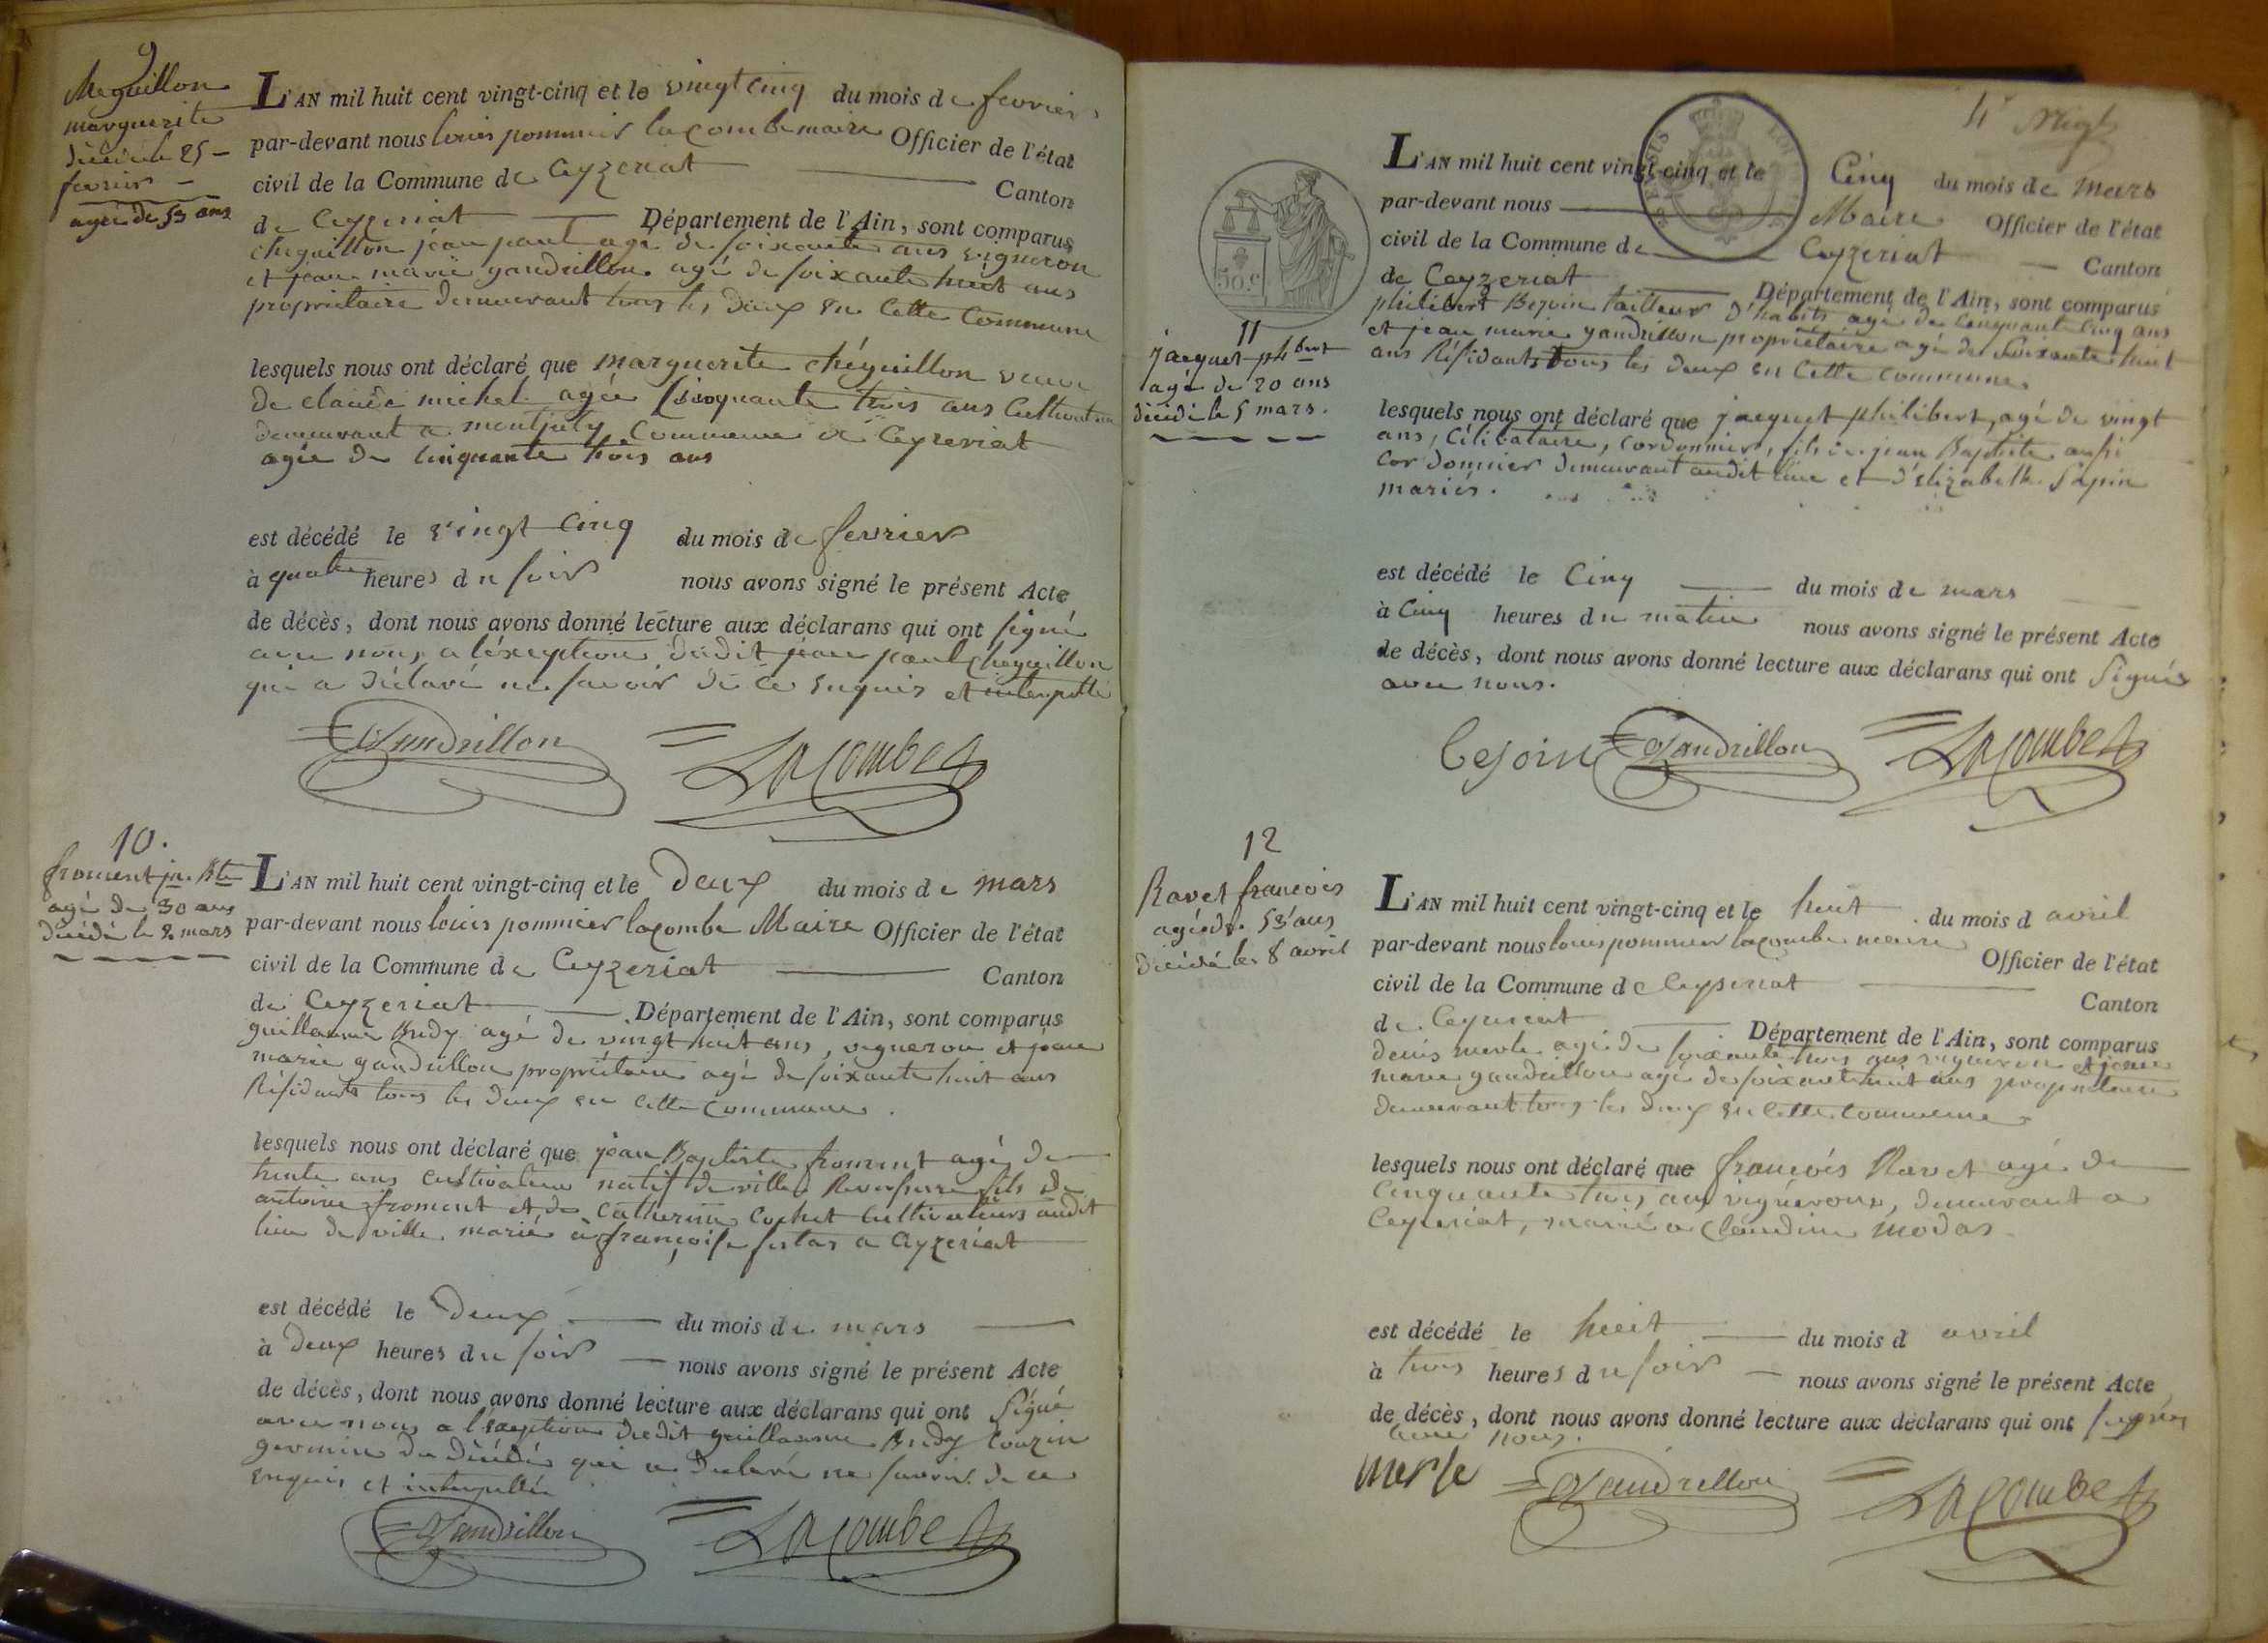 9
Cheguillon
marguerite
décédé le 25
fevrier
agée de 53 ans
L'AN mil huit cent vingt-cinq et le vingt cinq du mois de fevrier
par-devant nous louis pommier lacombe maire Officier de l'état
civil de la Commune de Ceyzeriat Canton
de Ceyzeriat Département de l'Ain, sont comparus
cheguillon jean paul agé de soixante ans vigneron
et jean marie gandrillon agé de soixante huit ans
proprietaire demeurant tous les deux en cette commune
lesquels nous ont déclaré que marguerite chéguillon veuve
de claude michel agée cinquante trois ans
demeurant a montjuly commune de Ceyzeriat
agée de cinquante trois ans
est décédé le vingt cinq du mois de fevrier
à quatre heures du soir nous avons signé le présent Acte
de décès, dont nous avons donné lecture aux déclarans qui ont signé
avec nous a l'exeption dudit jean paul cheguillon
qui a déclaré ne savoir de ce enquis et interpellé
Gandrillon Lacombe
10.
froment jn. Bte
agé de 30 ans
décédé le 2 mars
L'AN mil huit cent vingt-cinq et le Deux du mois de mars
par-devant nous louis pommier lacombe Maire Officier de l'état
civil de la Commune de Ceyzeriat Canton
de Ceyzeriat Département de l'Ain, sont comparus
guillaume Bredy agé de vingt huit ans, vigneron et jean
marie gandrillon propriétaire agé de soixante huit ans
Résidants tous les deux en cette commune.
lesquels nous ont déclaré que jean Baptiste froment agé de
trente ans cultivateur natif de ville Reversure fils de
antoine froment et de Catherine Cochet cultivateurs audit
lieu de ville marié à françoise a Ceyzeriat
est décédé le Deux du mois de mars
à deux heures du soir nous avons signé le présent Acte
de décès, dont nous avons donné lecture aux déclarans qui ont signé
avec nous a l'exeption dudit guillaume Bredy couzin
germain du décédé qui a declaré ne savoir de ce
enquis et interpellé
Gandrillon Lacombe
4e
50 c
11
jacquet phbert
agé de 20 ans
décédé le 5 mars.
L'AN mil huit cent vingt-cinq et le Cinq du mois de Mars
par-devant nous Maire Officier de l'état
civil de la Commune de Ceyzeriat Canton
de Ceyzeriat Département de l'Ain, sont comparus
philibert Bezoin tailleur d'habits agé de cinquante cinq ans
et jean marie gandrillon propriétaire agé de soixante huit
ans Résidants tous les deux en cette commune.
lesquels nous ont déclaré que jacquet philibert, agé de vingt
ans, célibataire, cordonnier, fils de jean Baptiste aussi
cordonnier demeurant audit lieu et d'Elizabeth Sapin
mariés.
est décédé le Cinq du mois de mars
à Cinq heures du matin nous avons signé le présent Acte
de décès, dont nous avons donné lecture aux déclarans qui ont signés
avec nous.
Besoin Gandrillon Lacombe
12
Ravet francois
agé de 53 ans
décédé le 8 avril
L'AN mil huit cent vingt-cinq et le huit du mois d avril
par-devant nous louis pommier lacombe maire Officier de l'état
civil de la Commune de Ceyzeriat Canton
de Ceyzeriat Département de l'Ain, sont comparus
denis merle agé de soixante trois ans vigneron et jean
marie gandrillon agé de soixante huit ans proprietaire
demeurant tous les deux en cette commune
lesquels nous ont déclaré que françois Ravet agé de
cinquante trois ans vigneron, demeurant a
Ceyzeriat, marié a claudine modas
est décédé le huit du mois d avril
à trois heures du soir nous avons signé le présent Acte
de décès, dont nous avons donné lecture aux déclarans qui ont signés
avec nous.
merle Gandrillon Lacombe